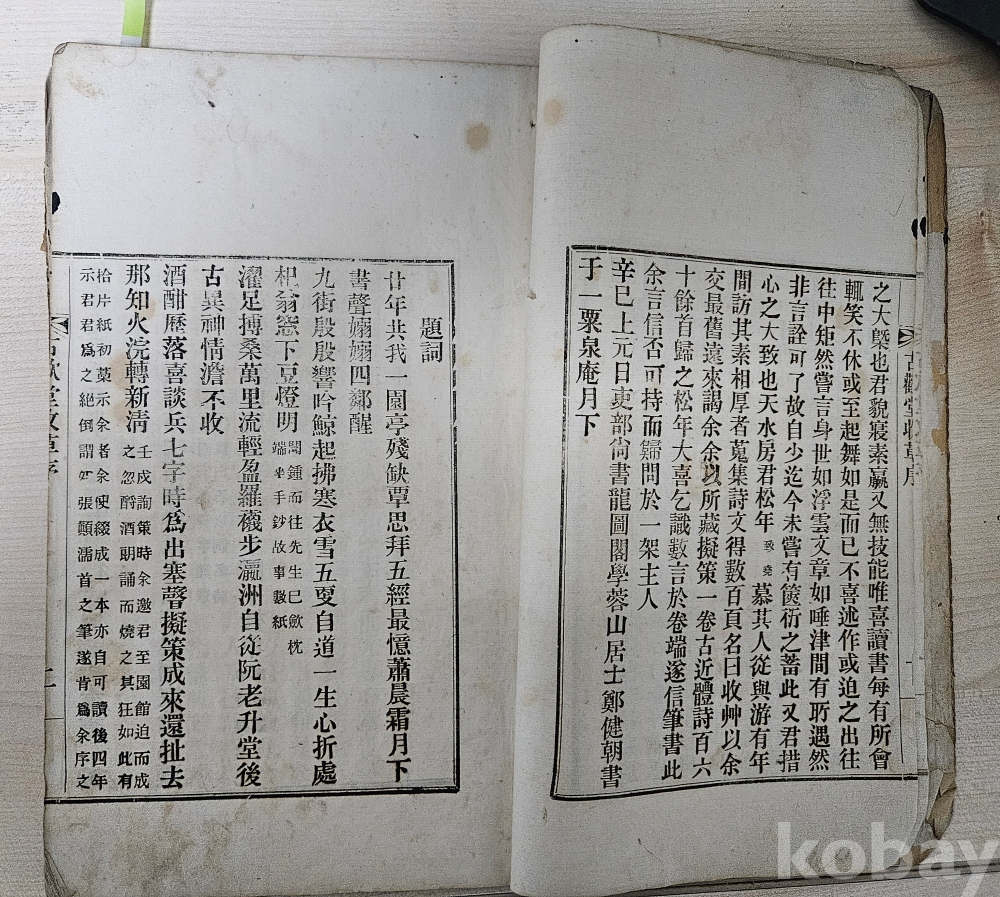 之大槩也君貌寢素羸又無技能唯喜讀書每有所會
輒笑不休或至起舞如是而已不喜述作或迫之出往
往中矩然嘗言身世如浮雲文章如唾津間有所遇然
非言詮可了故自少迄今未嘗有篋衍之蓄此又君措
心之大致也天水房君松年 慕其人從與游有年
間訪其素相厚者蒐集詩文得數百頁名曰收艸以余
交最舊遠來謁余余以所藏擬策一卷古近體詩百六
十餘首歸之松年大喜乞識數言於卷端遂信筆書此
余言信否可持而歸問於一架主人
辛巳上元日吏部尙書龍圖閣學蓉山居士鄭健朝書
于一粟泉庵月下
古歡堂收草序
題詞
廿年共我一園亭殘缺覃思拜五經最憶蕭晨霜月下
書聲嫋嫋四鄰醒
九街殷殷響吟鯨起拂寒衣雪五更自道一生心折處
杞翁窓下豆燈明 聞鍾而往先生已歛枕
端坐手鈔故事數紙
濯足搏桑萬里流輕盈羅襪步瀛洲自從阮老升堂後
古異神情澹不收
酒酣歷落喜談兵七字時爲出塞聲擬策成來還扯去
那知火浣轉新淸 壬戌詢策時余邀君至園館迫而成
之忽酹酒朗誦而燒之其狂如此有
拾片紙初藁示余者余使綴成一本亦自可讀後四年
示君君爲之絕倒謂 張顚濡首之筆遂肯爲余序之
古歡堂收草序
二
kobay